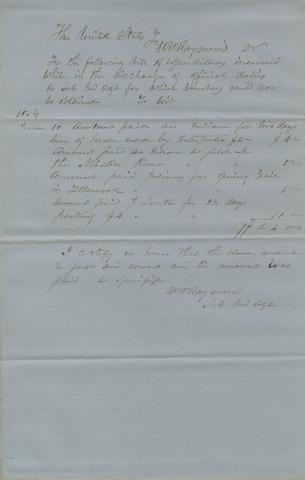 The United States To
W W Raymond Dr
For the following bill of expenditures incurred
while in the discharge of official duties
as Sub Ind Agt for which vouchers could not
be obtained To Wit
1854
10 Amount paid an Indian for two days
hire of horse used by Interpreter $2 $ 4 00
Amount paid an Indian as pilot up
the Nehalem River " " 5
Amount paid Indians for going
in Tillamook " "
Amount paid J for days
packing $4 " " 10
$ 24 00
I certify on honor that the above account
is just and correct and the amount was
paid as specified
W W Raymond
Sub Ind Agt